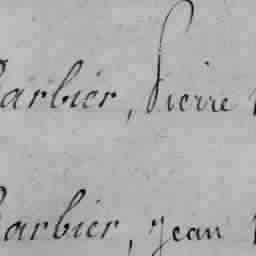 Barbier, Pierre
Barbier, Jean